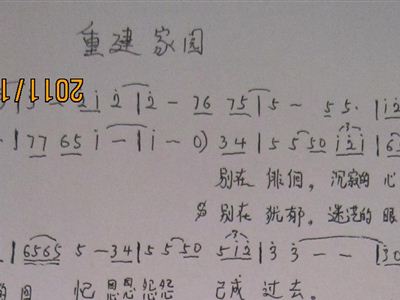 重建家园
2011/1
5 - 2 i 2 | 2 - 76 75 | 5 - 5 5. | i 2
| 77 65 i - | i - 0) 34 | 5 5 50 i2i | 65
别在 徘徊，沉寂的 心
别在 犹郁，迷茫的 眼
| 6565 5 - 34 | 5 5 50 5i2 | 3 3 - - | 30
恩恩怨怨 已成 过去。